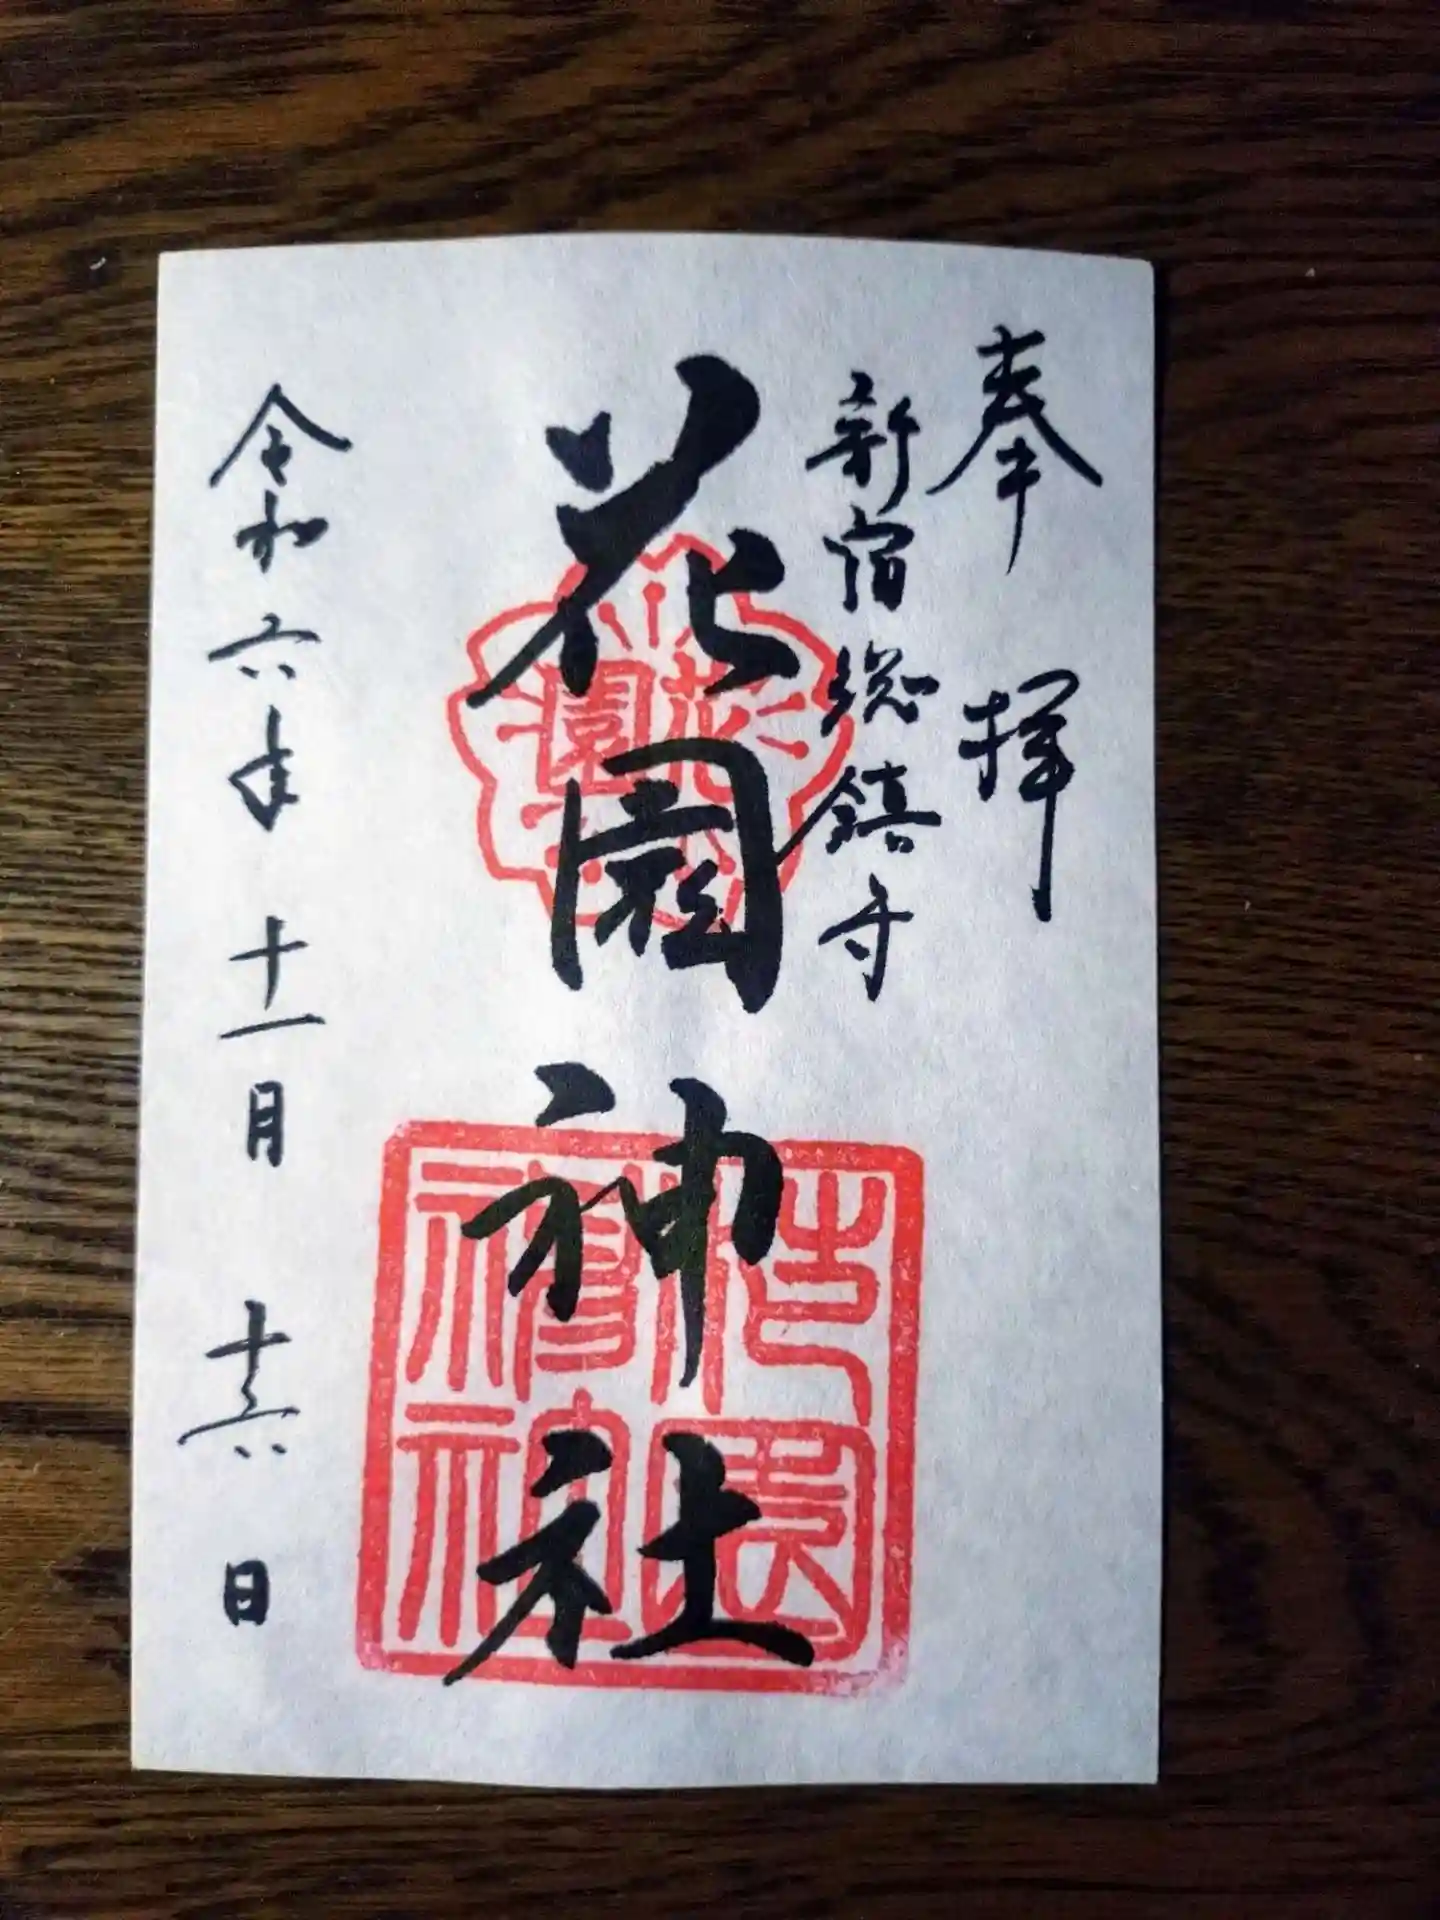 奉拝
新宿総鎮守
花園神社
令和六年十一月十六日
花園